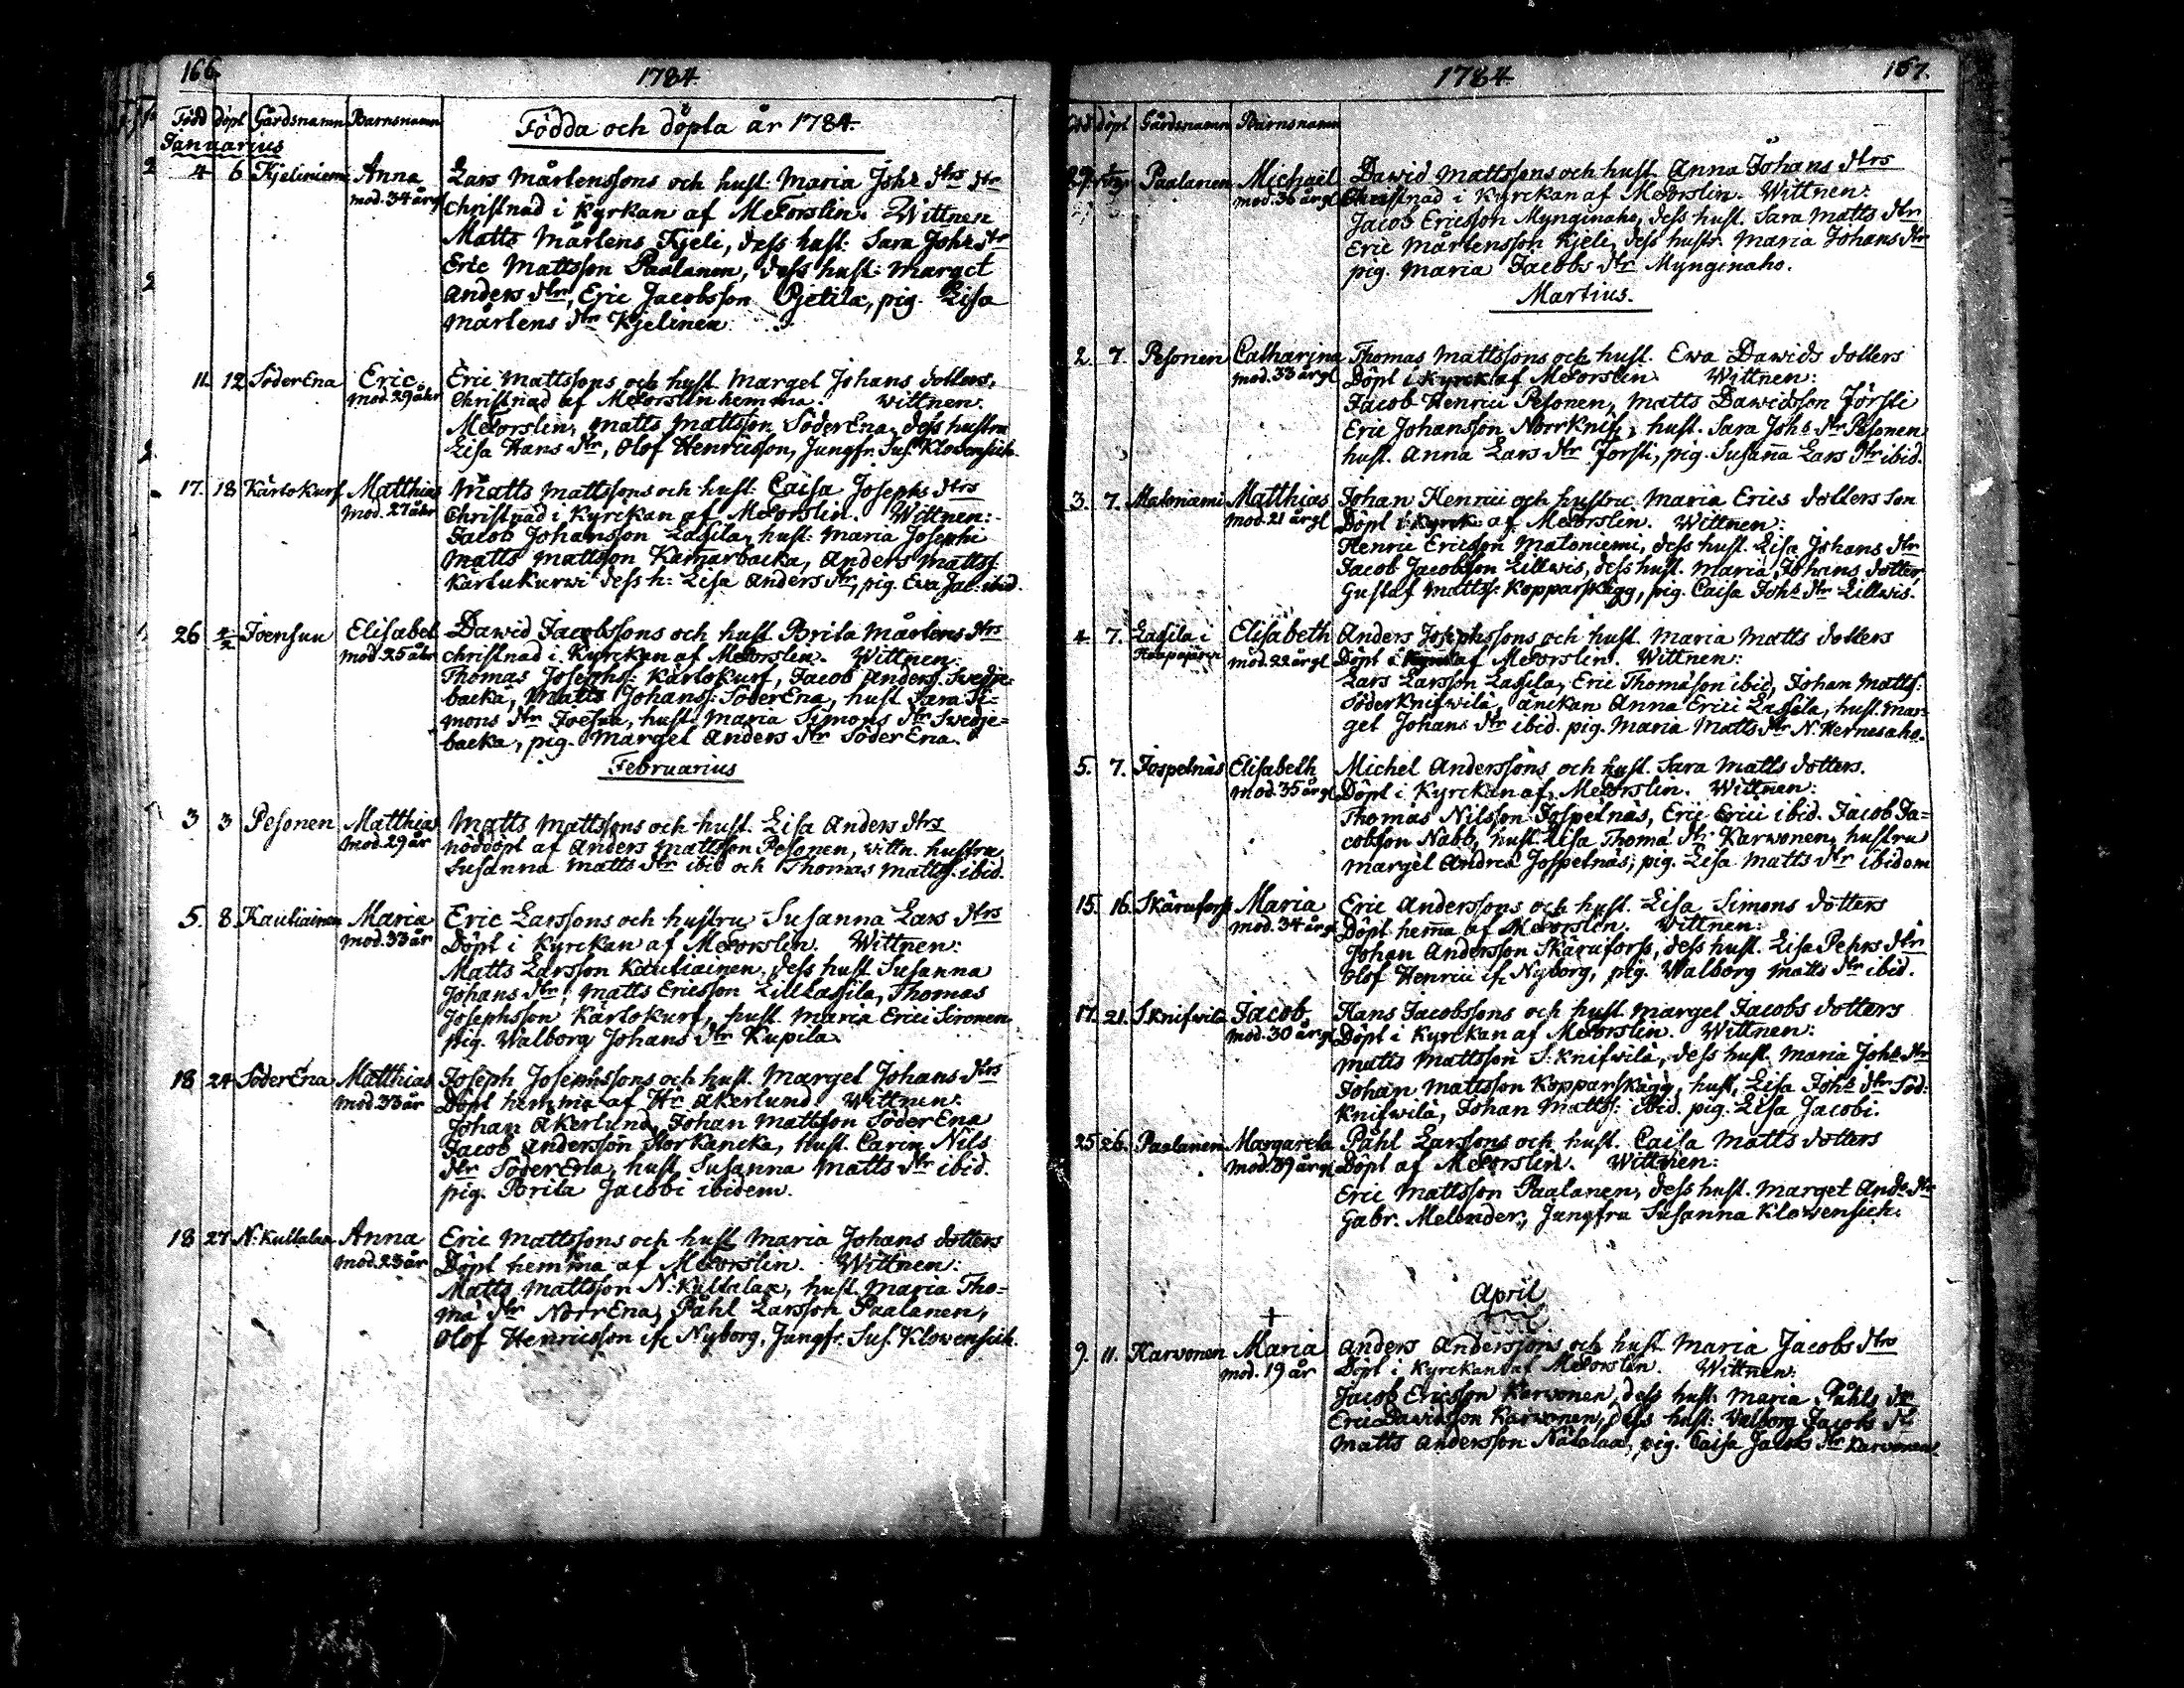 166.
1784.
Född döpt Gårdsnamn Barnsnamn
Födda och döpta år 1784.
Januarius
4 6 Kjeliniemi Anna Lars Mårtenssons och hust: Maria Joh: dtrs dtr
mod. 34 årgl Christnad i Kyrkan af MeTorslin. Wittnen
Matts Mårtens Kjeli, dess hust: Sara Joh: dtr
Eric Mattsson Paalanen, dess hust: Marget
Anders dtr, Eric Jacobsson Pjetila, pig. Lisa
Mårtens dtr Kjelinen
11. 12 SöderEna Eric Eric Mattssons och hust. Marget Johans dotters,
mod. 29 åhr Christnad af MeTorslin hemma. Wittnen
MeTorslin, Matts Mattsson SöderEna, dess hustru
Lisa Hans dtr, Olof Henricsson, Jungfr. Sus. Klowensich.
17. 18 Kärtokurf Matthias Matts Mattssons och hust: Caisa Josephs dtrs
mod. 27 åhr Christnad i Kyrckan af MeTorslin. Wittnen:
Jacob Johansson Lassila, hust: Maria Josephi
Matts Mattsson Kamarbacka, Anders Mattss:
Kärtukurwi dess h: Lisa Anders dtr, pig. Eva Jac: ibid.
26 Joensuu Elisabet Dawid Jacobssons och hust Brita Mårtens dtrs
mod. 25 åhr christnad i Kyrckan af MeTorslin. Wittnen:
Thomas Josephs: Kärtokurf, Jacob Anders. Swedje-
backa, Matts Johanss: SöderEna, hust Sara Si-
mons dtr Joesuu, hust: Maria Simons dtr Swedje-
backa, pig. Marget Anders dtr SöderEna.
Februarius
3 3 Pesonen Matthias Matts Mattssons och hust. Lisa Anders dtrs
mod. 29 år nöddöpt af Anders Mattsson Pesonen, wittn. hustru
Susanna Matts dtr ibid och Thomas Mattss. ibid.
5. 8. Kautiainen Maria Eric Larssons och hustru Susanna Lars dtrs
mod. 33 år Döpt i Kyrckan af MeTorslin. Wittnen:
Matts Larsson Kautiainen, dess hust Susanna
Johans dtr, Matts Ericsson LillLassila, Thomas
Josephsson Kärtokurf, hust. Maria Erici Sironen
pig. Walborg Johans dtr Kupila
18 24 SöderEna Matthias Joseph Josephssons och hust. Marget Johans dtrs
mod. 33 år Döpt hemma af Hr Akerlund Wittnen:
Johan Akerlund, Johan Mattsson SöderEna
Jacob Andersson Storkancka, Hust. Caren Nils
dtr SöderEna, hust Susanna Matts dtr ibid.
pig. Brita Jacobi ibidem.
18 27 N: Kultalaa Anna Eric Mattssons och hust Maria Johans dotters
mod. 23 år Döpt hemma af MeTorslin. Wittnen:
Matts Mattsson N: Kultalaa, hust. Maria Tho-
mä dtr NorrEna, Påhl Larsson Paalanen,
Olof Henricsson if. Nyborg, Jungfr. Sus. Klowensich.
1784
167.
döpt Gårdsnamn Barnsnamn
29. Paalanen Michael Dawid Mattssons och hust Anna Johans dtrs
mod. 36 årgl Christnad i Kyrckan af MeTorslin. Wittnen:
Jacob Ericsson Mynginaho, dess hust. Sara Matts dtr
Eric Mårtensson Kjeli, dess hustr. Maria Johans dtr
pig. Maria Jacobs dtr Mynginaho.
Martius.
2. 7. Pesonen Catharina Thomas Mattssons och hust. Ewa Dawids dotters
mod. 33 årgl Döpt i Kyrck: af MeTorslin. Wittnen:
Jacob Henrici Pesonen, Matts Dawidsson Försti
Eric Johansson NorrKnif, hust. Sara Johs dtr Pesonen
hust. Anna Lars dtr Försti, pig. Susanna Lars dtr ibid.
3. 7. Matoniemi Matthias Johan Henrici och hustru Maria Erics dotters son
mod. 21 årgl Döpt i Kyrck: af MeTorslin. Wittnen:
Henric Ericsson Matoniemi, dess hust. Lisa Johans dtr
Jacob Jacobsson Lillwis, dess hust. Maria Johans dotter,
Gustaf Mattss: Kopparskägg, pig. Caisa Johs dtr Lillwis.
4. 7. Lassila i Elisabeth Anders Josephssons och hust. Maria Matts dotters
Haapajärvi mod. 22 årgl Döpt i Kyrck af MeTorslin. Wittnen:
Lars Larsson Lassila, Eric Thomasson ibid, Johan Mattss:
SöderKnifwilä, änckan Anna Erici Lassila, hust. Mar-
get Johans dtr ibid. pig. Maria Matts dtr N. Hernesaho.
5. 7. Jospelnäs Elisabeth Michel Anderssons och hust. Sara Matts dotters.
mod. 35 årgl Döpt i Kyrckan af MeTorslin. Wittnen:
Thomas Nilsson Jospelnäs, Eric Erici ibid. Jacob Ja-
cobsson Nabb, hust Lisa Thomä dtr Karwonen, hustru
Marget Andreä Jospelnäs, pig. Lisa Matts dtr ibidem
15. 16. Skäruforss Maria Eric Anderssons och hust. Lisa Simons dotters
mod. 34 årgl Döpt hemma af MeTorslin. Wittnen:
Johan Andersson Skäruforss, dess hust. Lisa Pehrs dtr
Olof Henrici if. Nyborg, pig. Walborg Matts dtr ibid.
17. 21. S Knifwilä Jacob Hans Jacobssons och hust Marget Jacobs dotters
mod. 30 årgl Döpt i Kyrckan af MeTorslin. Wittnen:
Matts Mattsson S: Knifwilä, dess hust. Maria Johs dtr
Johan Mattsson Kopparskägg, hust, Lisa Johs dtr Söd:
Knifwilä, Johan Mattss: ibid. pig. Lisa Jacobi.
25 26. Paalanen Margareta Påhl Larssons och hust. Caisa Matts dotters
mod. 39 årgl Döpt af MeTorslin. Wittnen:
Eric Mattsson Paalanen, dess hust. Marget Ands dtr
Gabr. Melender, Jungfru Susanna Klowensich.
April
9. 11. Karvonen Maria Anders Anderssons och hust Maria Jacobs dtrs
mod. 19 år Döpt i Kyrckan af MeTorslin. Wittnen:
Jacob Ericsson Karwonen, dess hust: Maria Påhls dtr
Eric Davidsson Karwonen, dess hust: Walborg Jacobs dtr
Matts Andersson Nätalaa, pig. Caisa Jacobs dtr Karvonen